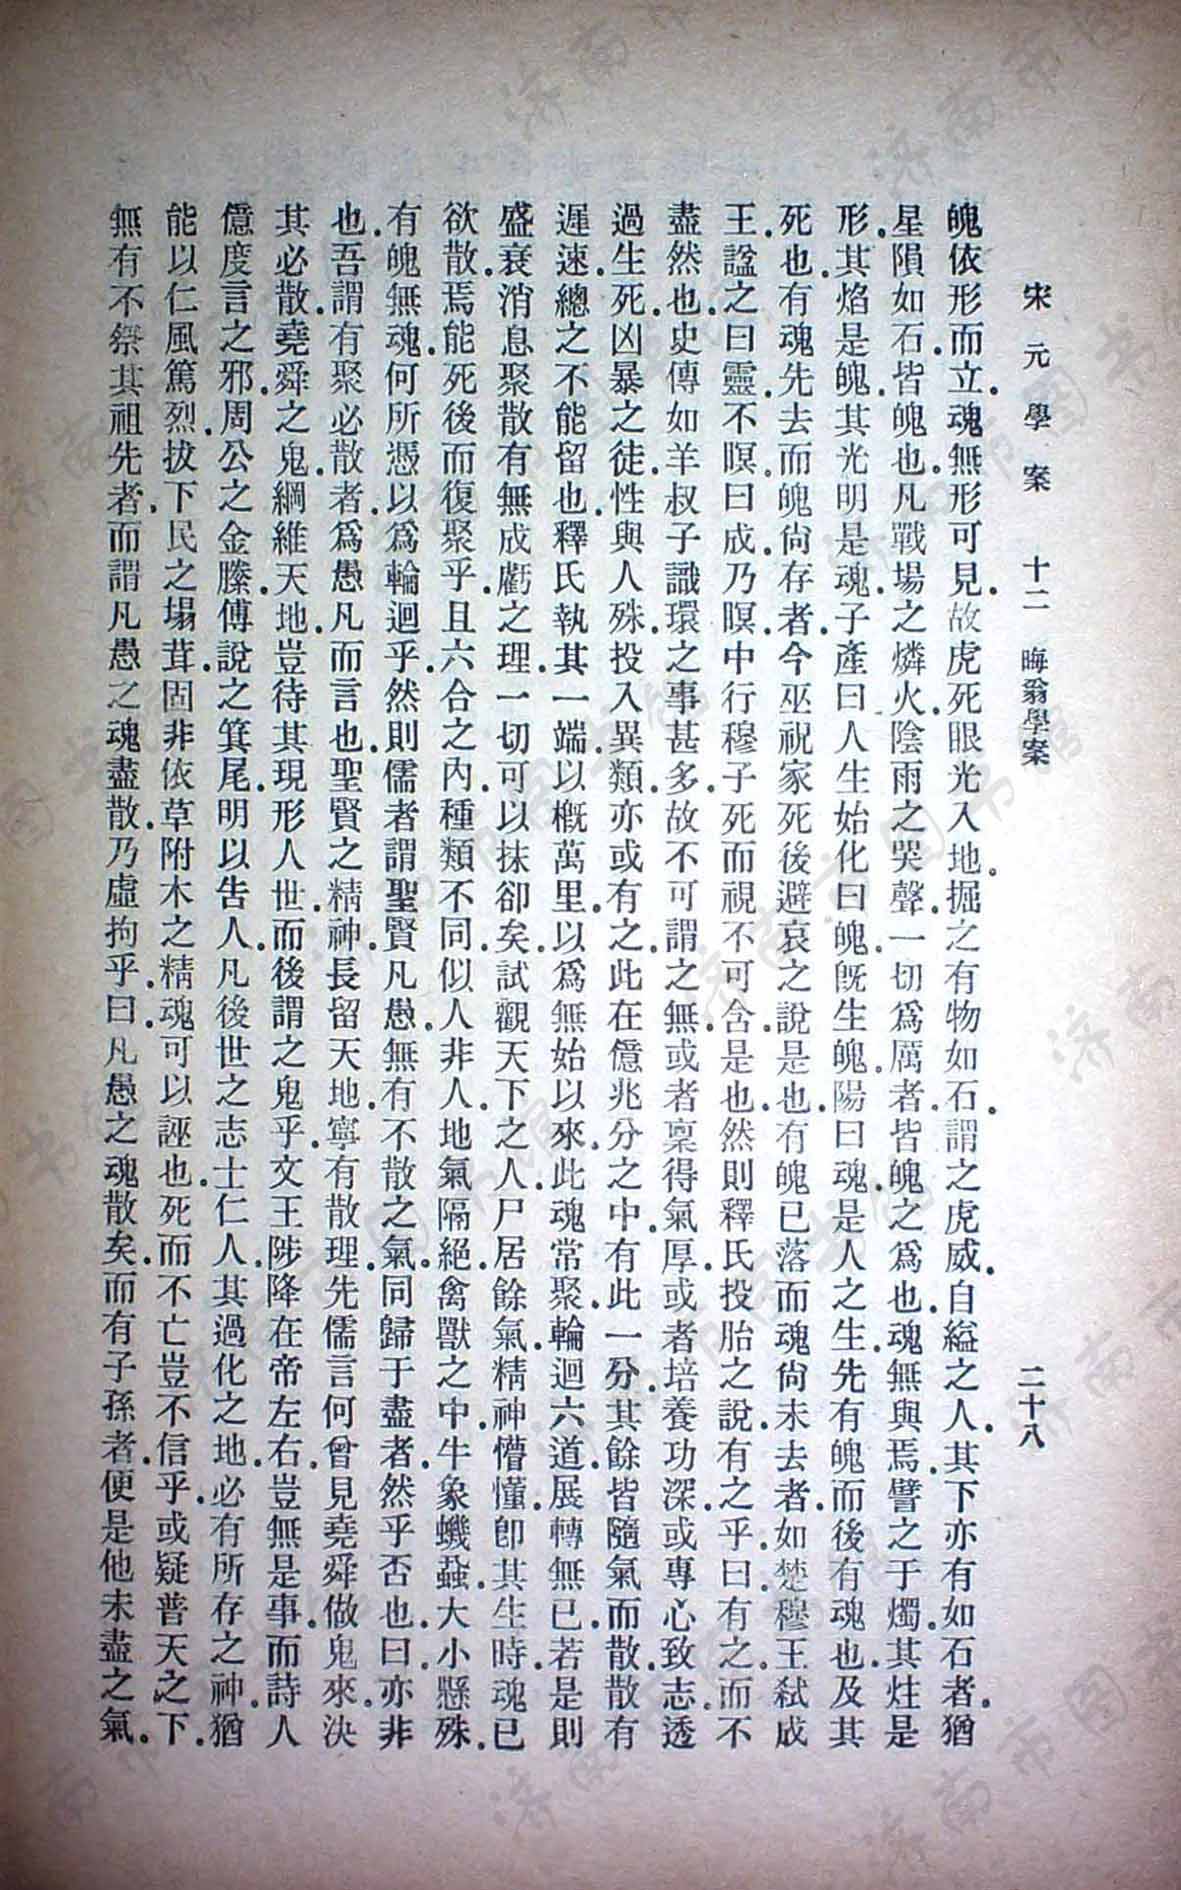 宋元學案 十二 晦翁學案 二十八
魄依形而立.魂無形可見.故虎死眼光入地.掘之有物如石.謂之虎威.自縊之人.其下亦有如石者.猶
星隕如石.皆魄也.凡戰場之燐火.陰雨之哭聲.一切爲厲者.皆魄之爲也.魂無與焉.譬之于燭.其炷是
形.其焰是魄.其光明是魂.子產曰人生始化曰魄.旣生魄.陽曰魂.是人之生.先有魄而後有魂也.及其
死也.有魂先去而魄尙存者.今巫祝家死後避哀之說是也.有魄已落而魂尙未去者.如楚穆王弒成
王.諡之曰靈.不瞑.曰成.乃瞑.中行穆子死而視不可含是也.然則釋氏投胎之說.有之乎.曰有之.而不
盡然也.史傳如羊叔子識環之事甚多.故不可謂之無.或者稟得氣厚.或者培養功深.或專心致志.透
過生死.凶暴之徒.性與人殊.投入異類.亦或有之.此在億兆分之中.有此一分.其餘皆隨氣而散.散有
遲速.總之不能留也.釋氏執其一端.以概萬里.以爲無始以來.此魂常聚.輪迴六道.展轉無已.若是則
盛衰消息聚散有無成虧之理.一切可以抹卻矣.試觀天下之人.尸居餘氣.精神懵懂.卽其生時.魂已
欲散.焉能死後而復聚乎.且六合之內.種類不同.似人非人.地氣隔絕.禽獸之中.牛象蟣蝨.大小懸殊.
有魄無魂.何所憑以爲輪迴乎.然則儒者謂聖賢凡愚.無有不散之氣.同歸于盡者.然乎否也.曰.亦非
也.吾謂有聚必散者.爲愚凡而言也.聖賢之精神.長留天地.寧有散理.先儒言何曾見堯舜做鬼來.決
其必散.堯舜之鬼.綱維天地.豈待其現形人世.而後謂之鬼乎.文王陟降.在帝左右.豈無是事.而詩人
億度言之邪.周公之金縢.傅說之箕尾.明以吿人.凡後世之志士仁人.其過化之地.必有所存之神.猶
能以仁風篤烈.拔下民之塌茸.固非依草附木之精魂可以誣也.死而不亡.豈不信乎.或疑普天之下.
無有不祭其祖先者.而謂凡愚之魂盡散.乃虛拘乎.曰.凡愚之魂散矣.而有子孫者.便是他未盡之氣.